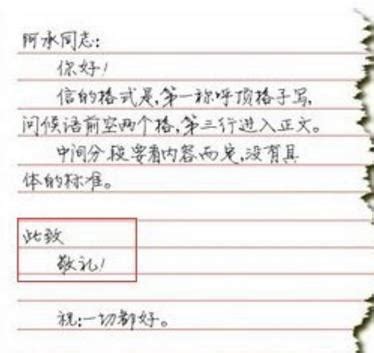 阿承同志:
你好!
信的格式是,第一称呼顶格子写,
问候语前空两个格,第三行进入正文。
中间分段要看内容而定,没有具
体的标准。
此致
敬礼!
祝:一切都好。